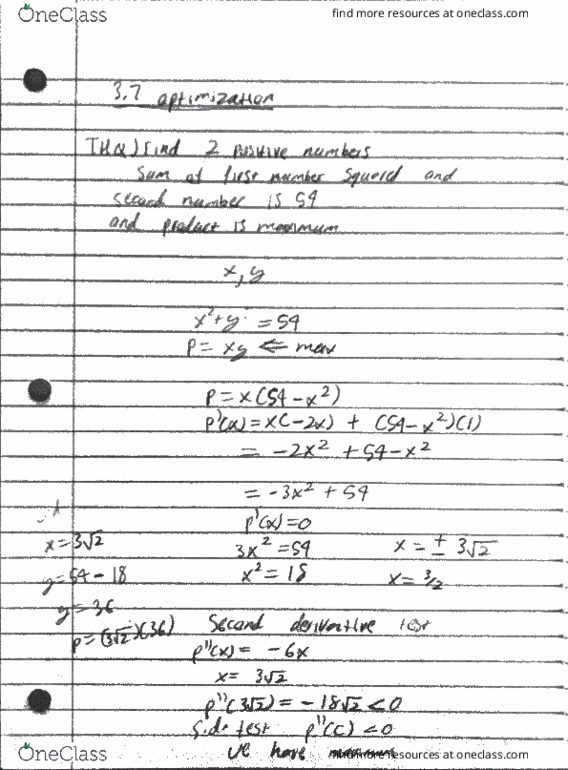 OneClass
find more resources at oneclass.com
3.7 optimization
Find 2 positive numbers
Sum of first number squared and
second number is 54
and product is maximum
x, y
x²+y = 54
P = xy ⇐ max
P = x(54-x²)
P'(x) = x(-2x) + (54-x²)(1)
= -2x² + 54-x²
= -3x² + 54
P'(x)=0
x=3√2
3x² = 54
x = ± 3√2
y=54-18
x² = 18
x= 3√2
y=36
P=(3√2)(36)
Second derivative test
P''(x) = -6x
x= 3√2
P''(3√2) = -18√2 < 0
Side test P''(c) < 0
we have
OneClass
find more resources at oneclass.com